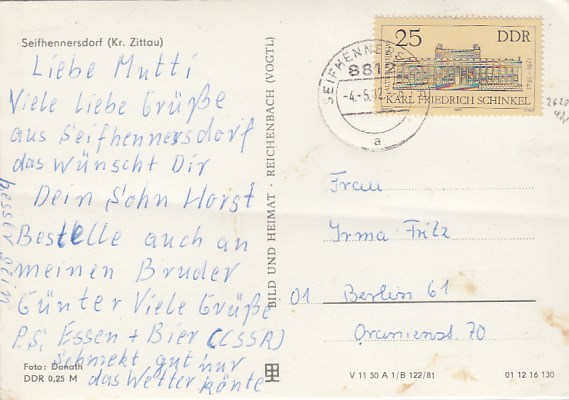 Seifhennersdorf (Kr. Zittau)
Liebe Mutti
Viele liebe Grüße
aus Seifhennersdorf
das wünscht Dir
Dein Sohn Horst
Bestelle auch an
meinen Bruder
Günter Viele Grüße
P.S. Essen + Bier (CSSR)
schmekt gut nur
das Wetter könte
besser sein
Foto: Donath
DDR 0,25 M
BILD UND HEIMAT · REICHENBACH (VOGTL)
25 DDR
KARL FRIEDRICH SCHINKEL
SEIFHENNERS
881
-4.-5.
a
Frau
Irma Fritz
01 Berlin 61
Oranienst. 70
V 11 50 A 1/B 122/81
01 12 16 130